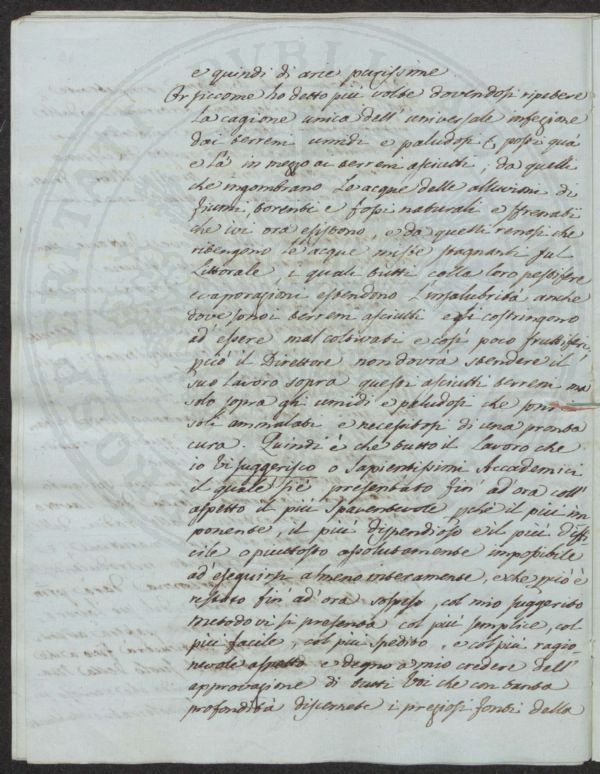 e quindi di arie purissime.
Or siccome ho detto più volte dovendosi ripetere
la cagione unica dell' universale infezione
dai terreni umidi e paludosi, posti quà
e là in mezzo ai terreni asciutti, da quelli
che ingombrano le acque delle alluvioni di
fiumi, torrenti e fossi naturali e sfrenati
che ivi ora esistono, e da quelli renosi che
ritengono le acque miste stagnanti sul
Littorale, i quali tutti colla loro pestifere
evaporazioni estendono l'insalubrità anche
dove sono i terreni asciutti e si costringono
ad' essere mal coltivati e così poco fruttiferi
pciò il Direttore non dovrà stendere il
suo lavoro sopra questi asciutti terreni ma
solo sopra gli umidi e paludosi che sono i
soli ammalati e necessitosi di una pronta
cura. Quindi è che tutto il lavoro che
io vi suggerisco o Sapientissimi Accademici
il quale si è presentato fin' ad' ora coll'
aspetto il più spaventevole pchè il più im
ponente, il più dispendioso e il più diffi
cile o piuttosto assolutamente impossibile
ad' eseguirsi almeno interamente, e che pciò è
restato fin' ad' ora sospeso, col mio suggerito
metodo vi si presenta col più semplice, col
più facile, col più spedito, e col più ragio
nevole aspetto e degno a mio credere dell'
approvazione di tutti Voi che con tanta
profondità discernete i preziosi fonti della